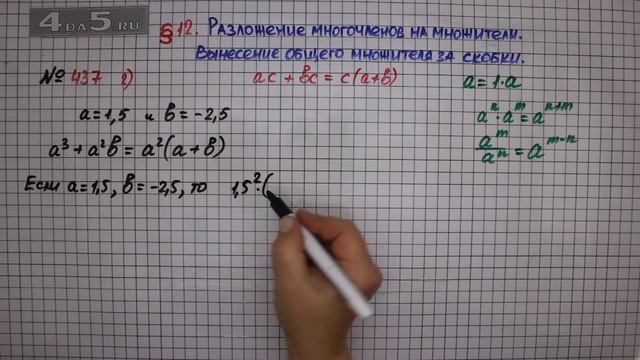 4DA5.RU
§12. Разложение многочленов на множители.
Вынесение общего множителя за скобки.
№ 437 г) ac + bc = c(a+b)
a = 1·a
a = 1,5 и b = -2,5
aⁿ · aᵐ = aⁿ⁺ᵐ
a³ + a²b = a²(a+b)
aᵐ/aⁿ = aᵐ⁻ⁿ
Если a = 1,5, b = -2,5, то 1,5² · (